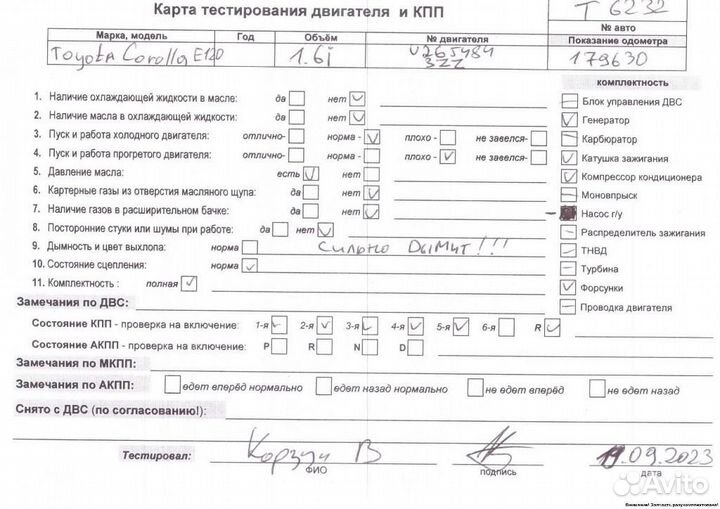 Карта тестирования двигателя и КПП
T 6232
№ авто
Марка, модель Год Объём № двигателя Показание одометра
Toyota Corolla E120 1.6i U265484 179630
3ZZ
комплектность
1. Наличие охлаждающей жидкости в масле: да нет
2. Наличие масла в охлаждающей жидкости: да нет
3. Пуск и работа холодного двигателя: отлично- норма - плохо - не завелся-
4. Пуск и работа прогретого двигателя: отлично- норма - плохо - не завелся-
5. Давление масла: есть нет
6. Картерные газы из отверстия масляного щупа: да нет
7. Наличие газов в расширительном бачке: да нет
8. Посторонние стуки или шумы при работе: да нет
9. Дымность и цвет выхлопа: норма Сильно Дымит!!!
10. Состояние сцепления: норма
11. Комплектность : полная
Блок управления ДВС
Генератор
Карбюратор
Катушка зажигания
Компрессор кондиционера
Моновпрыск
Насос г/у
Распределитель зажигания
ТНВД
Турбина
Форсунки
Проводка двигателя
Замечания по ДВС:
Состояние КПП - проверка на включение: 1-я 2-я 3-я 4-я 5-я 6-я R
Состояние АКПП - проверка на включение: P R N D
Замечания по МКПП:
Замечания по АКПП: едет вперёд нормально едет назад нормально не едет вперёд не едет назад
Снято с ДВС (по согласованию!):
Тестировал: Корзун В 19.09.2023
ФИО подпись дата
Avito
Внимание! Запчасть разукомплектована!